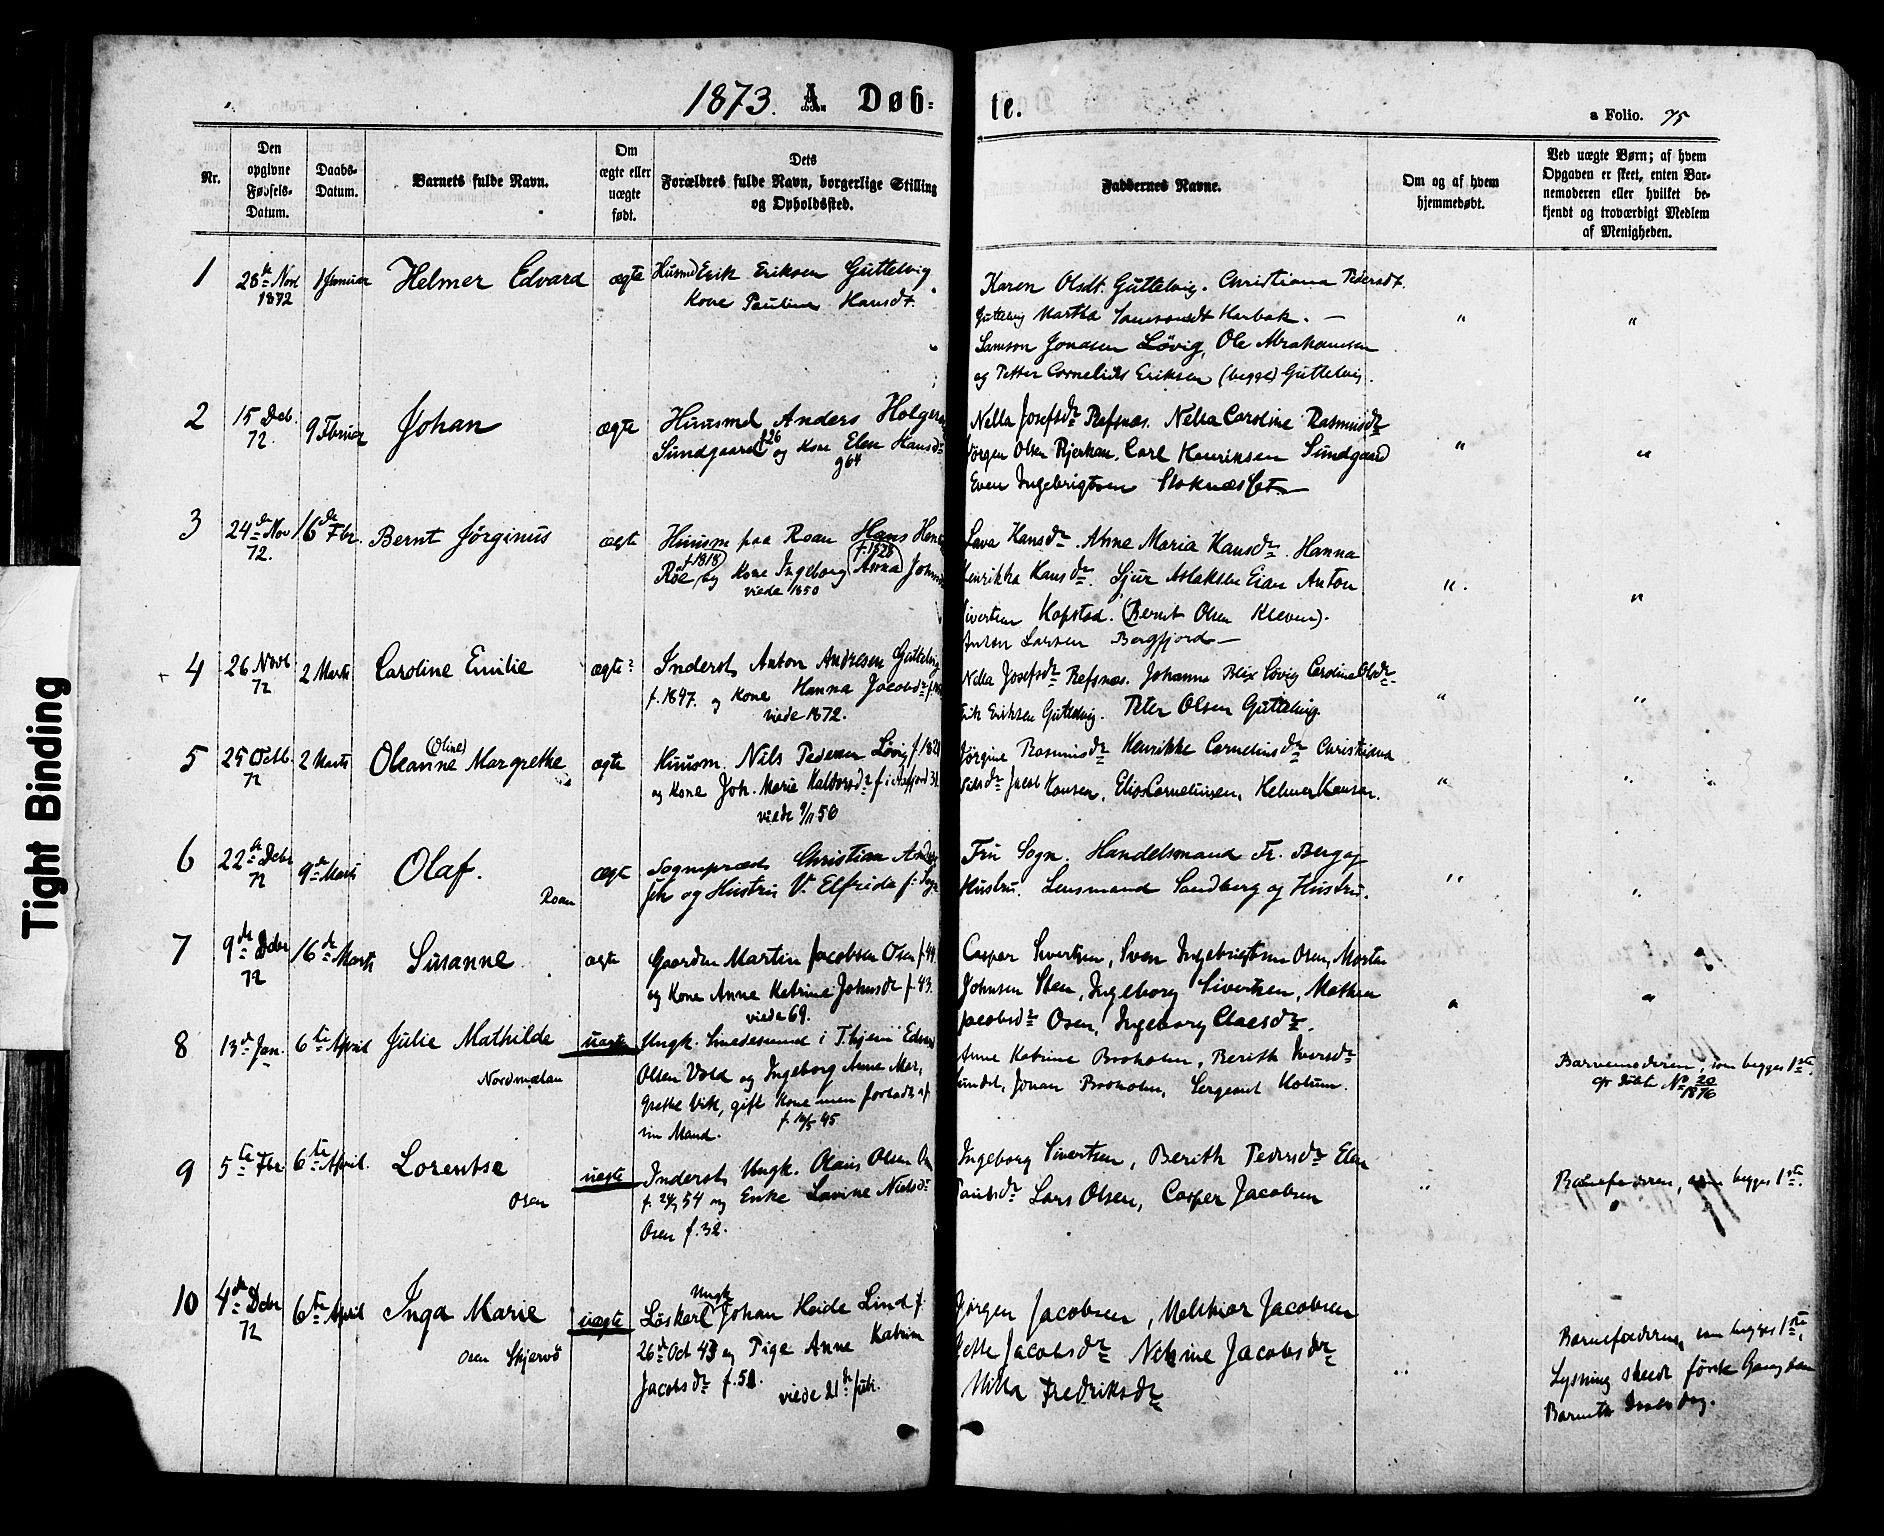 1873. A. Døb-
te.
a Folio. 75
Nr.
Den opgivne Fødsels-Datum.
Daabs-Datum.
Barnets fulde Navn.
Om ægte eller uægte født.
Dets Forældres fulde Navn, borgerlige Stilling og Opholdssted.
Faddernes Navne.
Om og af hvem hjemmedøbt.
Ved uægte Børn; af hvem Opgaven er skeet, enten Barnemoderen eller hvilket bekjendt og troværdigt Medlem af Menigheden.
1
28de Nov
1872
1 Januar
Helmer Edvard
ægte
Husmd Erik Eriksen Guttelvig
Kone Pauline Hansdt.
Karen Olsdt. Guttelvig. Christiana Pedersdt.
Guttelvig Martha Samsonsdt Harbak. —
Samson Jonasen Løvig, Ole Abrahamsen
og Petter Cornelius Eriksen (begge) Guttelvig.
2
15 Deb.
72.
9 Februar
Johan
ægte
Huusmd Anders Holger
Sundgaard f 26 og Kone Elen Hansdr
Nella Josefsdr Refsnæs. Nella Caroline Rasmusdr
Jørgen Olsen Bjerkan, Carl Henriksen Sundgaard
Even Ingebrigtsen
3
24de Nov
72.
16de Fbr.
Bernt Jørginus
ægte
Huusm paa Roan Hans
f. 1818 f. 1828
og Kone Ingeborg Anna
viede 1850
Hansdr. Anne Maria Hansdr. Hanna
Henrikka Hansdr. Sjur Aslaksen Eian Anton
Sivertsen Hopstad. (Bernt Olsen Kleven).
Anton Larsen Bergfjord —
4
26 Novb
72
2 Marts
Caroline Emilie
ægte
Inderst Anton Andresen Guttelvig
f. 1847. og Kone Hanna Jacobsdr
viede 1872.
Nella Josefsdr Refsnæs. Johanna Blix Løvig Caroline Olsdr
Erik Eriksen Guttelvig. Peter Olsen Guttelvig
5
25 Octb.
72
2 Marts
(Oline)
Oleanne Margrethe
ægte
Huusm. Nils Pedersen Løvig
og Kone Joh. Marie
viede 9/11 56
Jørgine Rasmusdr Henrikke Corneliusdr Christiana
Jacob Hansen, Elias Corneliusen, Helmer Hansen.
6
22de Debr
72
9de Marts
Olaf.
Roan
ægte
Sognepræst Christian
og Hustru V. Elfrida
Fru Sogn. Handelsmand Fr. Berg og
Hustru. Lensmand Sandberg og Hustru.
7
9de Dcbr
72
16de Marts
Susanne
ægte
Gaardm Martin Jacobsen Osen f. 44.
og Kone Anne Katrine Johnsdr f. 43.
viede 69.
Casper Sivertsen, Sven Ingebrigtsen Osen, Morten
Johnsen Sten, Ingeborg Sivertsen, Mathea
Jacobsdr Osen, Ingeborg Claesdr.
8
13de Jan.
6te April
Julie Mathilde
Nordmelan
uægte
Ungk. Smedesvend i T.hjem Edvard
Olsen Vold og Ingeborg Anne Mar,
grethe Vik, gift Kone men forladt af
sin Mand. f. 12/5 45
Anne Katrine Broholm, Berith Iversdr
Johan Broholm, Sergeant Hotum.
Barnemoderen, som begges 1ste.
cfr Døbte No 20/1876
9
5te Fbr
6te April.
Lorentse
Osen
uægte
Inderst Ungk. Olaus Olsen
54 og Enke Lovine Nielsdr
Osen f. 32.
Ingeborg Sivertsen, Berith Pedersdr Elen
Paulsdr Lars Olsen, Casper Jacobsen
Barnefaderen, som begges 1ste.
10
4de Dcbr
72
6te April
Inga Marie
Osen Skjervø
uægte
Ungk
Løskarl Johan Heide Lind f.
26de Oct 43 og Pige Anne Katrine
Jacobsdr f. 51. viede 21de Juli.
Jørgen Jacobsen, Melkior Jacobsen
Jacobsdr Nekine Jacobsdr
Milla Fredriksdr
Barnefaderen, som begges 1ste,
Lysning skeet første Gang
Barnets Daabsdag.
Tight Binding